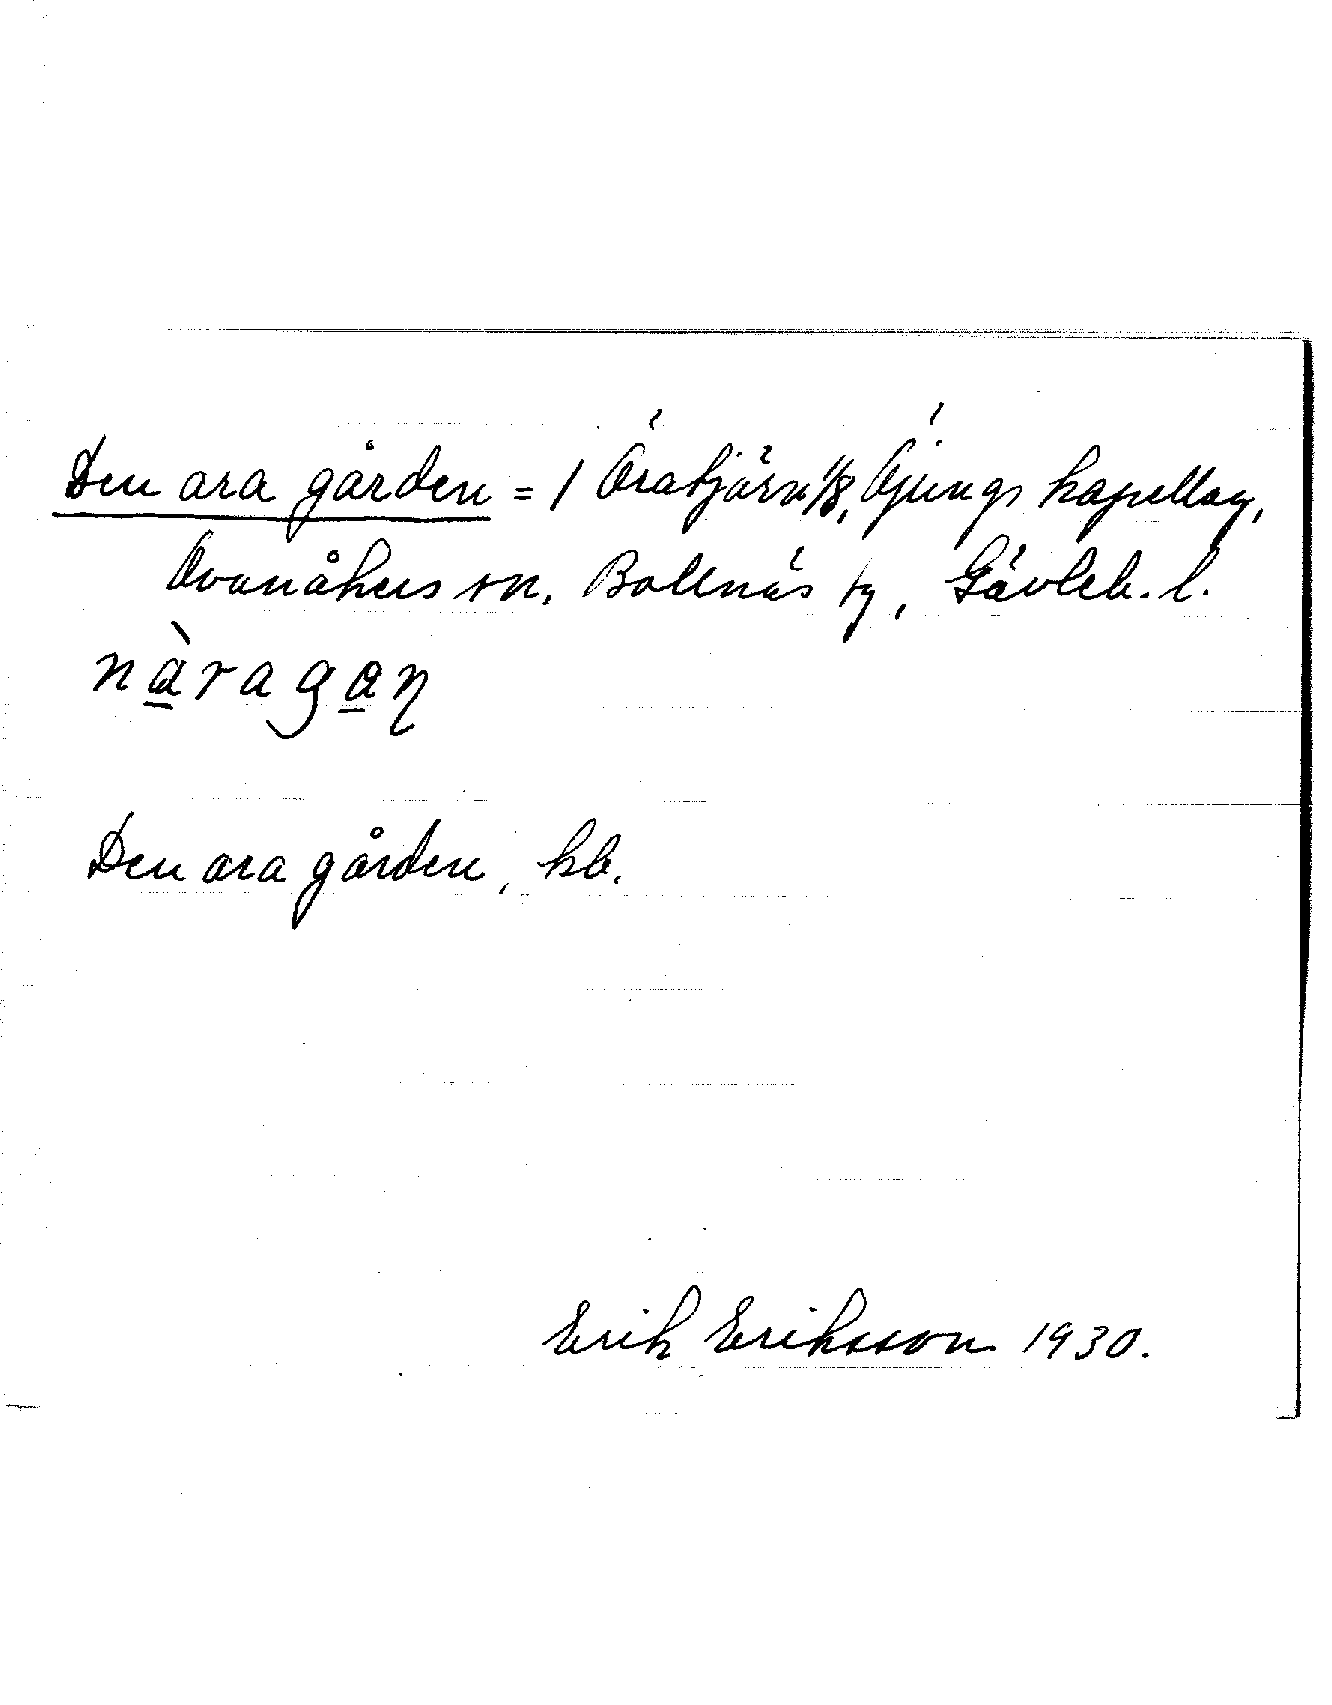 Den ara gården = 1 Öratjärn 1/8, Öjungs kapellag,
Ovanåkers sn, Bollnäs tg, Gävleb. l.
nàragan
Den ara gården, kb.
Erik Eriksson 1930.